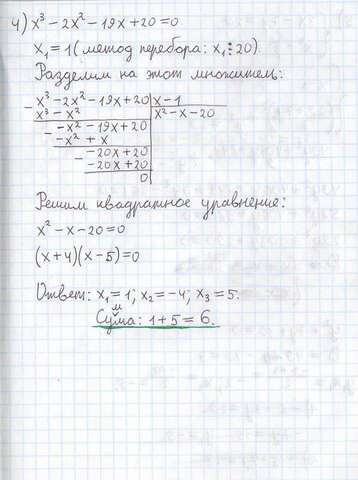 4) x³ - 2x² - 19x + 20 = 0
x₁ = 1 (метод перебора: x₁ ⋮ 20)
Разделим на этот множитель:
- x³ - 2x² - 19x + 20 | x - 1
x³ - x² | x² - x - 20
- -x² - 19x + 20
-x² + x
- -20x + 20
-20x + 20
0
Решим квадратное уравнение:
x² - x - 20 = 0
(x + 4)(x - 5) = 0
Ответ: x₁ = 1; x₂ = -4; x₃ = 5.
Сумма: 1 + 5 = 6.